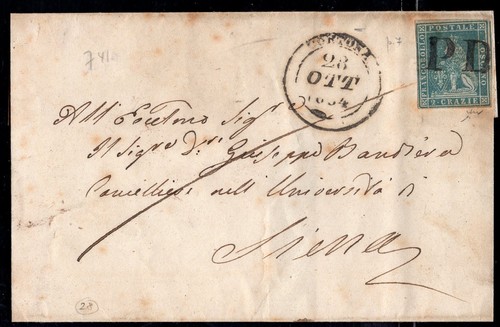 741
CORTONA
28
OTT
1854
FRANCOBOLLO
POSTALE
TOSCANO
2 GRAZIE
PD
All' Eccel.mo Sig.
Il Sig.re D.r Giuseppe Bandiera
Cancelliere nell' Università di
Siena
28